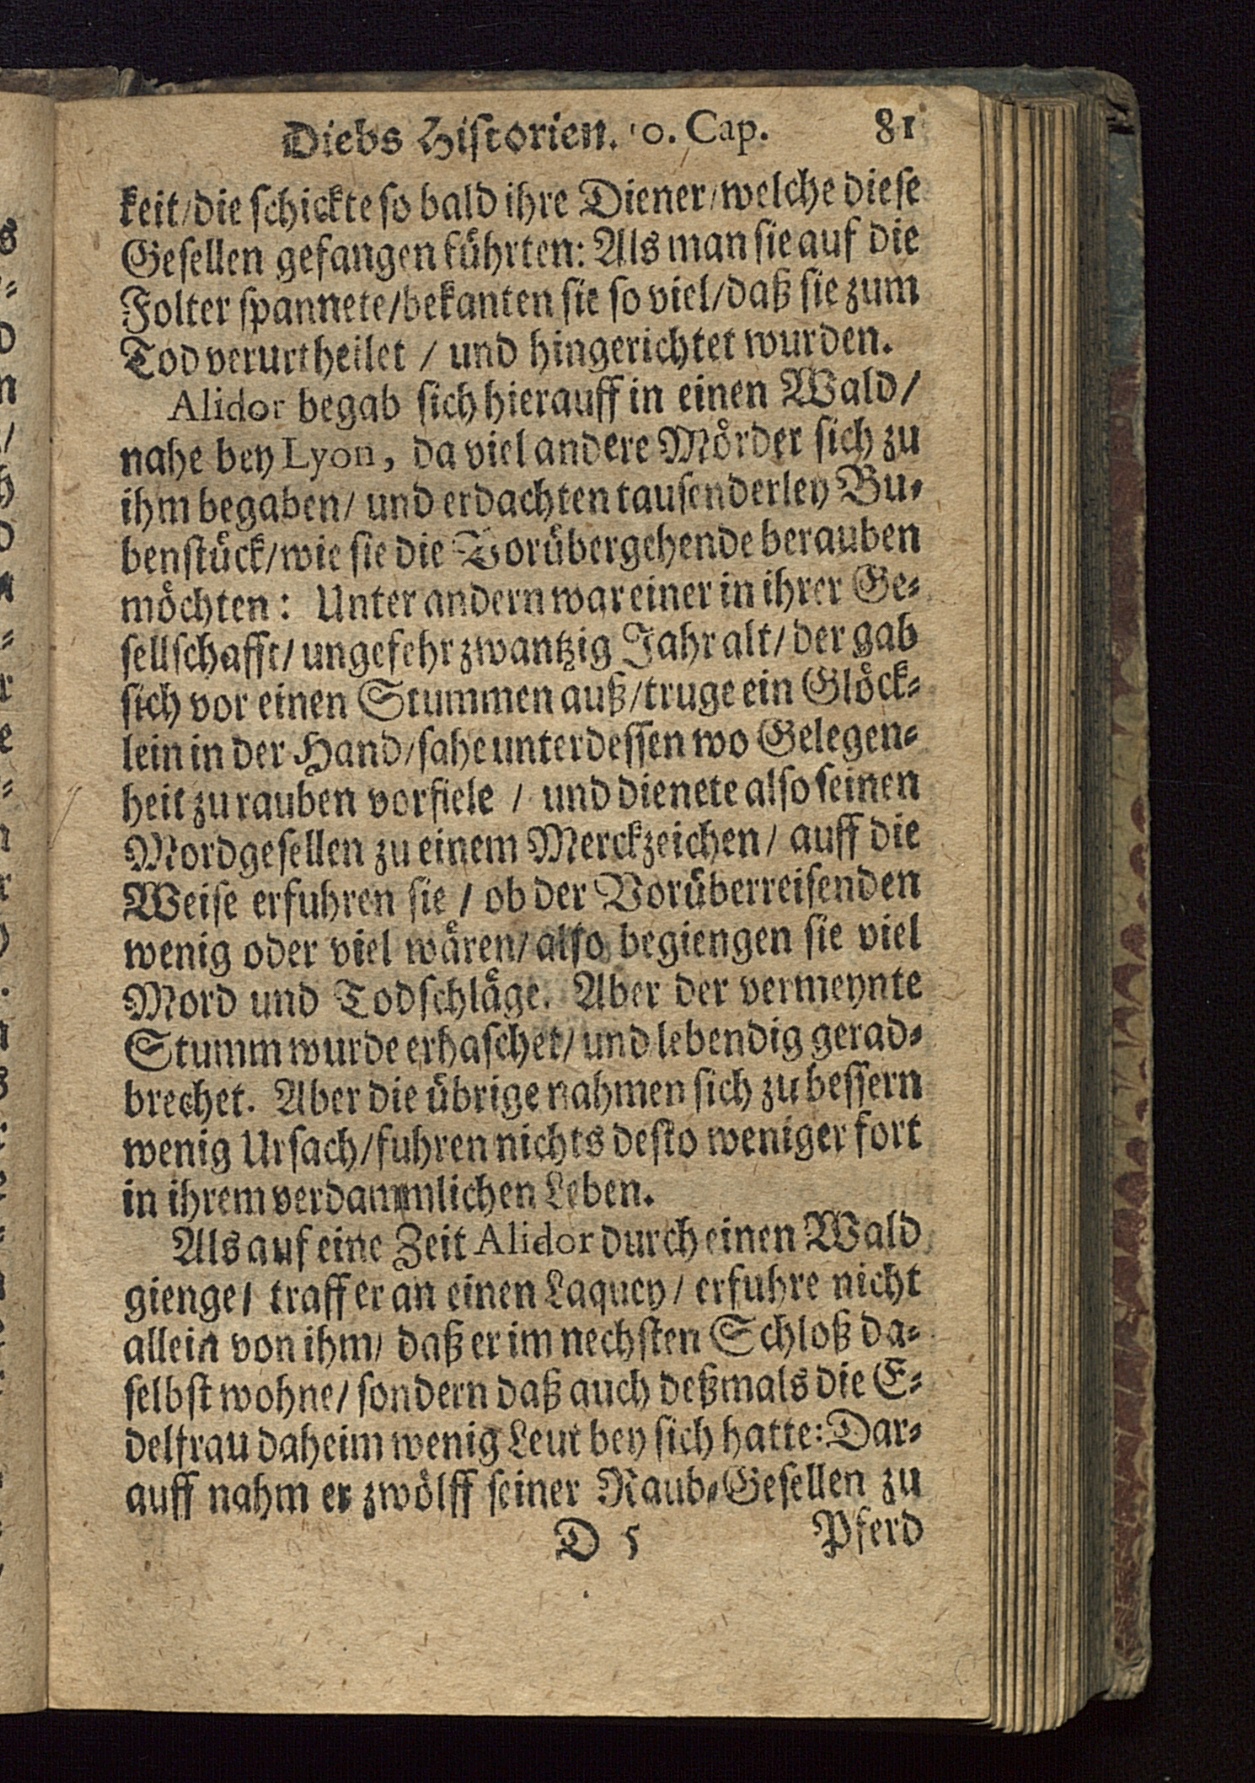 Diebs Historien. 10. Cap. 81
keit/die schickte so bald ihre Diener/welche diese
Gesellen gefangen führten: Als man sie auf die
Folter spannete/bekanten sie so viel/daß sie zum
Tod verurtheilet / und hingerichtet wurden.
Alidor begab sich hierauff in einen Wald/
nahe bey Lyon, da viel andere Mörder sich zu
ihm begaben/ und erdachten tausenderley Bu-
benstück/wie sie die Vorübergehende berauben
möchten: Unter andern war einer in ihrer Ge-
sellschafft/ ungefehr zwantzig Jahr alt/ der gab
sich vor einen Stummen auß/truge ein Glöck-
lein in der Hand/sahe unterdessen wo Gelegen-
heit zu rauben vorfiele / und dienete also seinen
Mordgesellen zu einem Merckzeichen/ auff die
Weise erfuhren sie / ob der Vorüberreisenden
wenig oder viel wären/ also begiengen sie viel
Mord und Todschläge. Aber der vermeynte
Stumm wurde erhaschet/ und lebendig gerad-
brechet. Aber die übrige nahmen sich zu bessern
wenig Ursach/fuhren nichts desto weniger fort
in ihrem verdammlichen Leben.
Als auf eine Zeit Alidor durch einen Wald
gienge/ traff er an einen Laquey/ erfuhre nicht
allein von ihm/ daß er im nechsten Schloß da-
selbst wohne/ sondern daß auch deßmals die E-
delfrau daheim wenig Leut bey sich hatte: Dar-
auff nahm er zwölff seiner Raub-Gesellen zu
D 5 Pferd